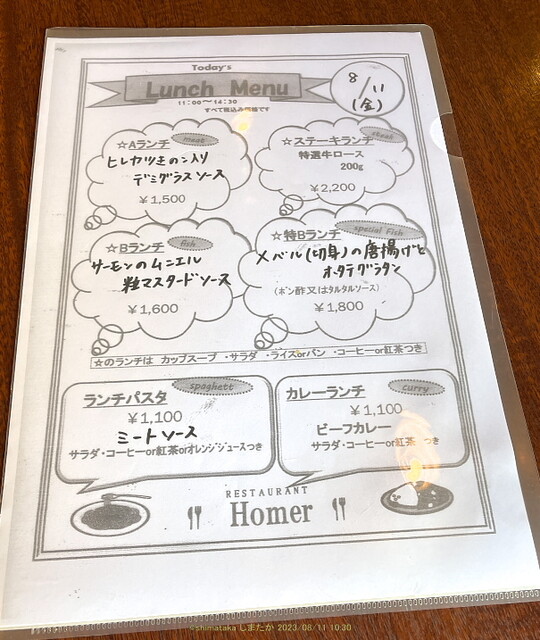 Today's
Lunch Menu
11:00～14:30
すべて税込み価格です
8/11
(金)
☆Aランチ meat
ヒレカツきのこ入り
デミグラスソース
￥1,500
☆ステーキランチ steak
特選牛ロース
200g
￥2,200
☆Bランチ fish
サーモンのムニエル
粒マスタードソース
￥1,600
☆特Bランチ special Fish
メバル(切身)の唐揚げと
ホタテグラタン
(ポン酢又はタルタルソース)
￥1,800
☆のランチは カップスープ ・サラダ ・ライスorパン ・コーヒーor紅茶つき
ランチパスタ spaghett
￥1,100
ミートソース
サラダ・コーヒーor紅茶orオレンジジュースつき
カレーランチ curry
￥1,100
ビーフカレー
サラダ・コーヒーor紅茶つき
RESTAURANT
Homer
©shimataka しまたか 2023/08/11 10:30